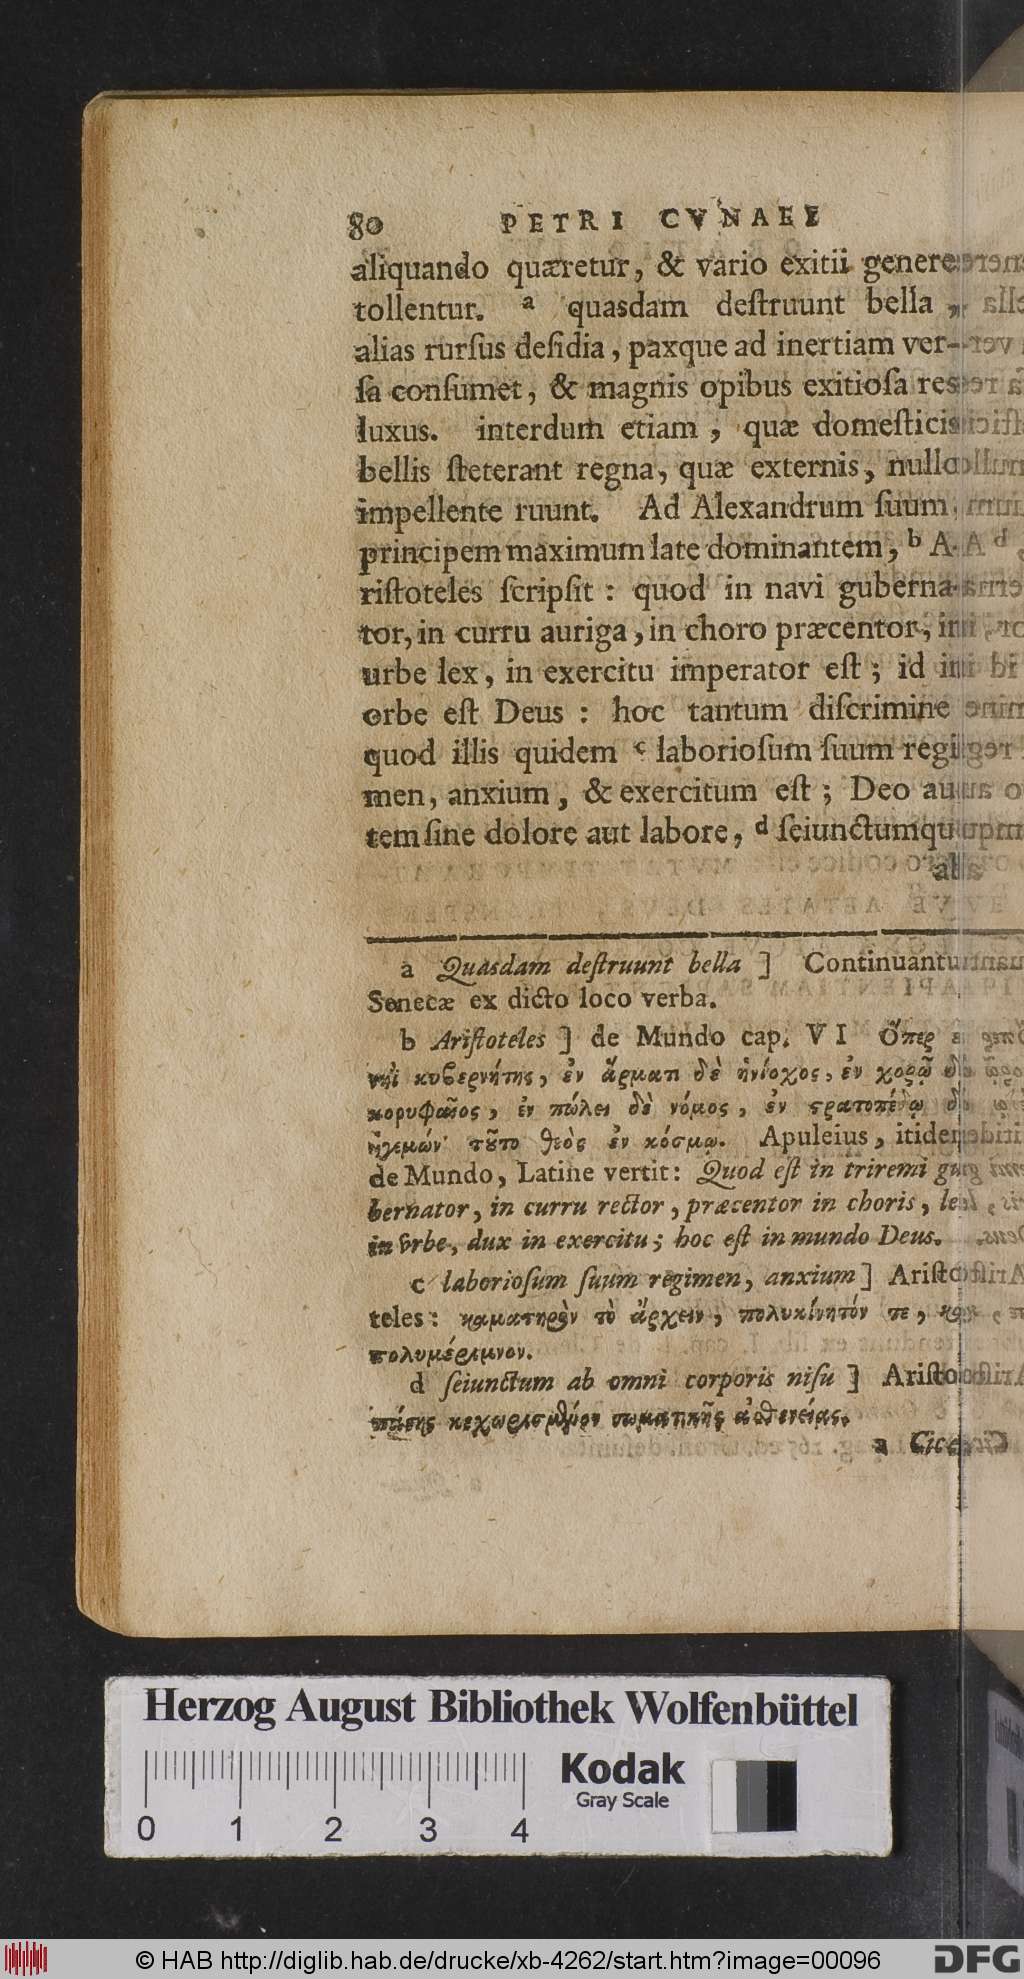 80 PETRI CVNAEI
aliquando quæretur, & vario exitii genere
tollentur. a quasdam deſtruunt bella,
alias rurſus deſidia, paxque ad inertiam ver-
ſa conſumet, & magnis opibus exitioſa res
luxus. interdum etiam, quæ domeſticis
bellis ſteterant regna, quæ externis, nullo
impellente ruunt. Ad Alexandrum ſuum
principem maximum late dominantem, b A-
riſtoteles ſcripſit: quod in navi guberna-
tor, in curru auriga, in choro præcentor, in
urbe lex, in exercitu imperator eſt; id in
orbe eſt Deus: hoc tantum diſcrimine
quod illis quidem c laborioſum ſuum regi
men, anxium, & exercitum eſt; Deo au
tem ſine dolore aut labore, d ſeiunctumqu
ab
a Quasdam deſtruunt bella ] Continuantur
Senecæ ex dicto loco verba.
b Ariſtoteles ] de Mundo cap. VI Ὅπερ
νηῒ κυβερνήτης, ἐν ἅρματι δὲ ἡνίοχος, ἐν χορῷ δὲ
κορυφαῖος, ἐν πόλει δὲ νόμος, ἐν στρατοπέδῳ δὲ
ἡγεμών· τοῦτο θεὸς ἐν κόσμῳ. Apuleius, itidem
de Mundo, Latine vertit: Quod eſt in triremi gu
bernator, in curru rector, præcentor in choris, lex
in urbe, dux in exercitu; hoc eſt in mundo Deus.
c laborioſum ſuum regimen, anxium ] Ariſto
teles: καματηρὸν τὸ ἄρχειν, πολυκίνητόν τε, καὶ
πολυμέριμνον.
d ſeiunctum ab omni corporis niſu ] Ariſto
πάσης κεχωρισμένον σωματικῆς ἀσθενείας.
a Cice
Herzog August Bibliothek Wolfenbüttel
Kodak
Gray Scale
0 1 2 3 4
© HAB http://diglib.hab.de/drucke/xb-4262/start.htm?image=00096
DFG